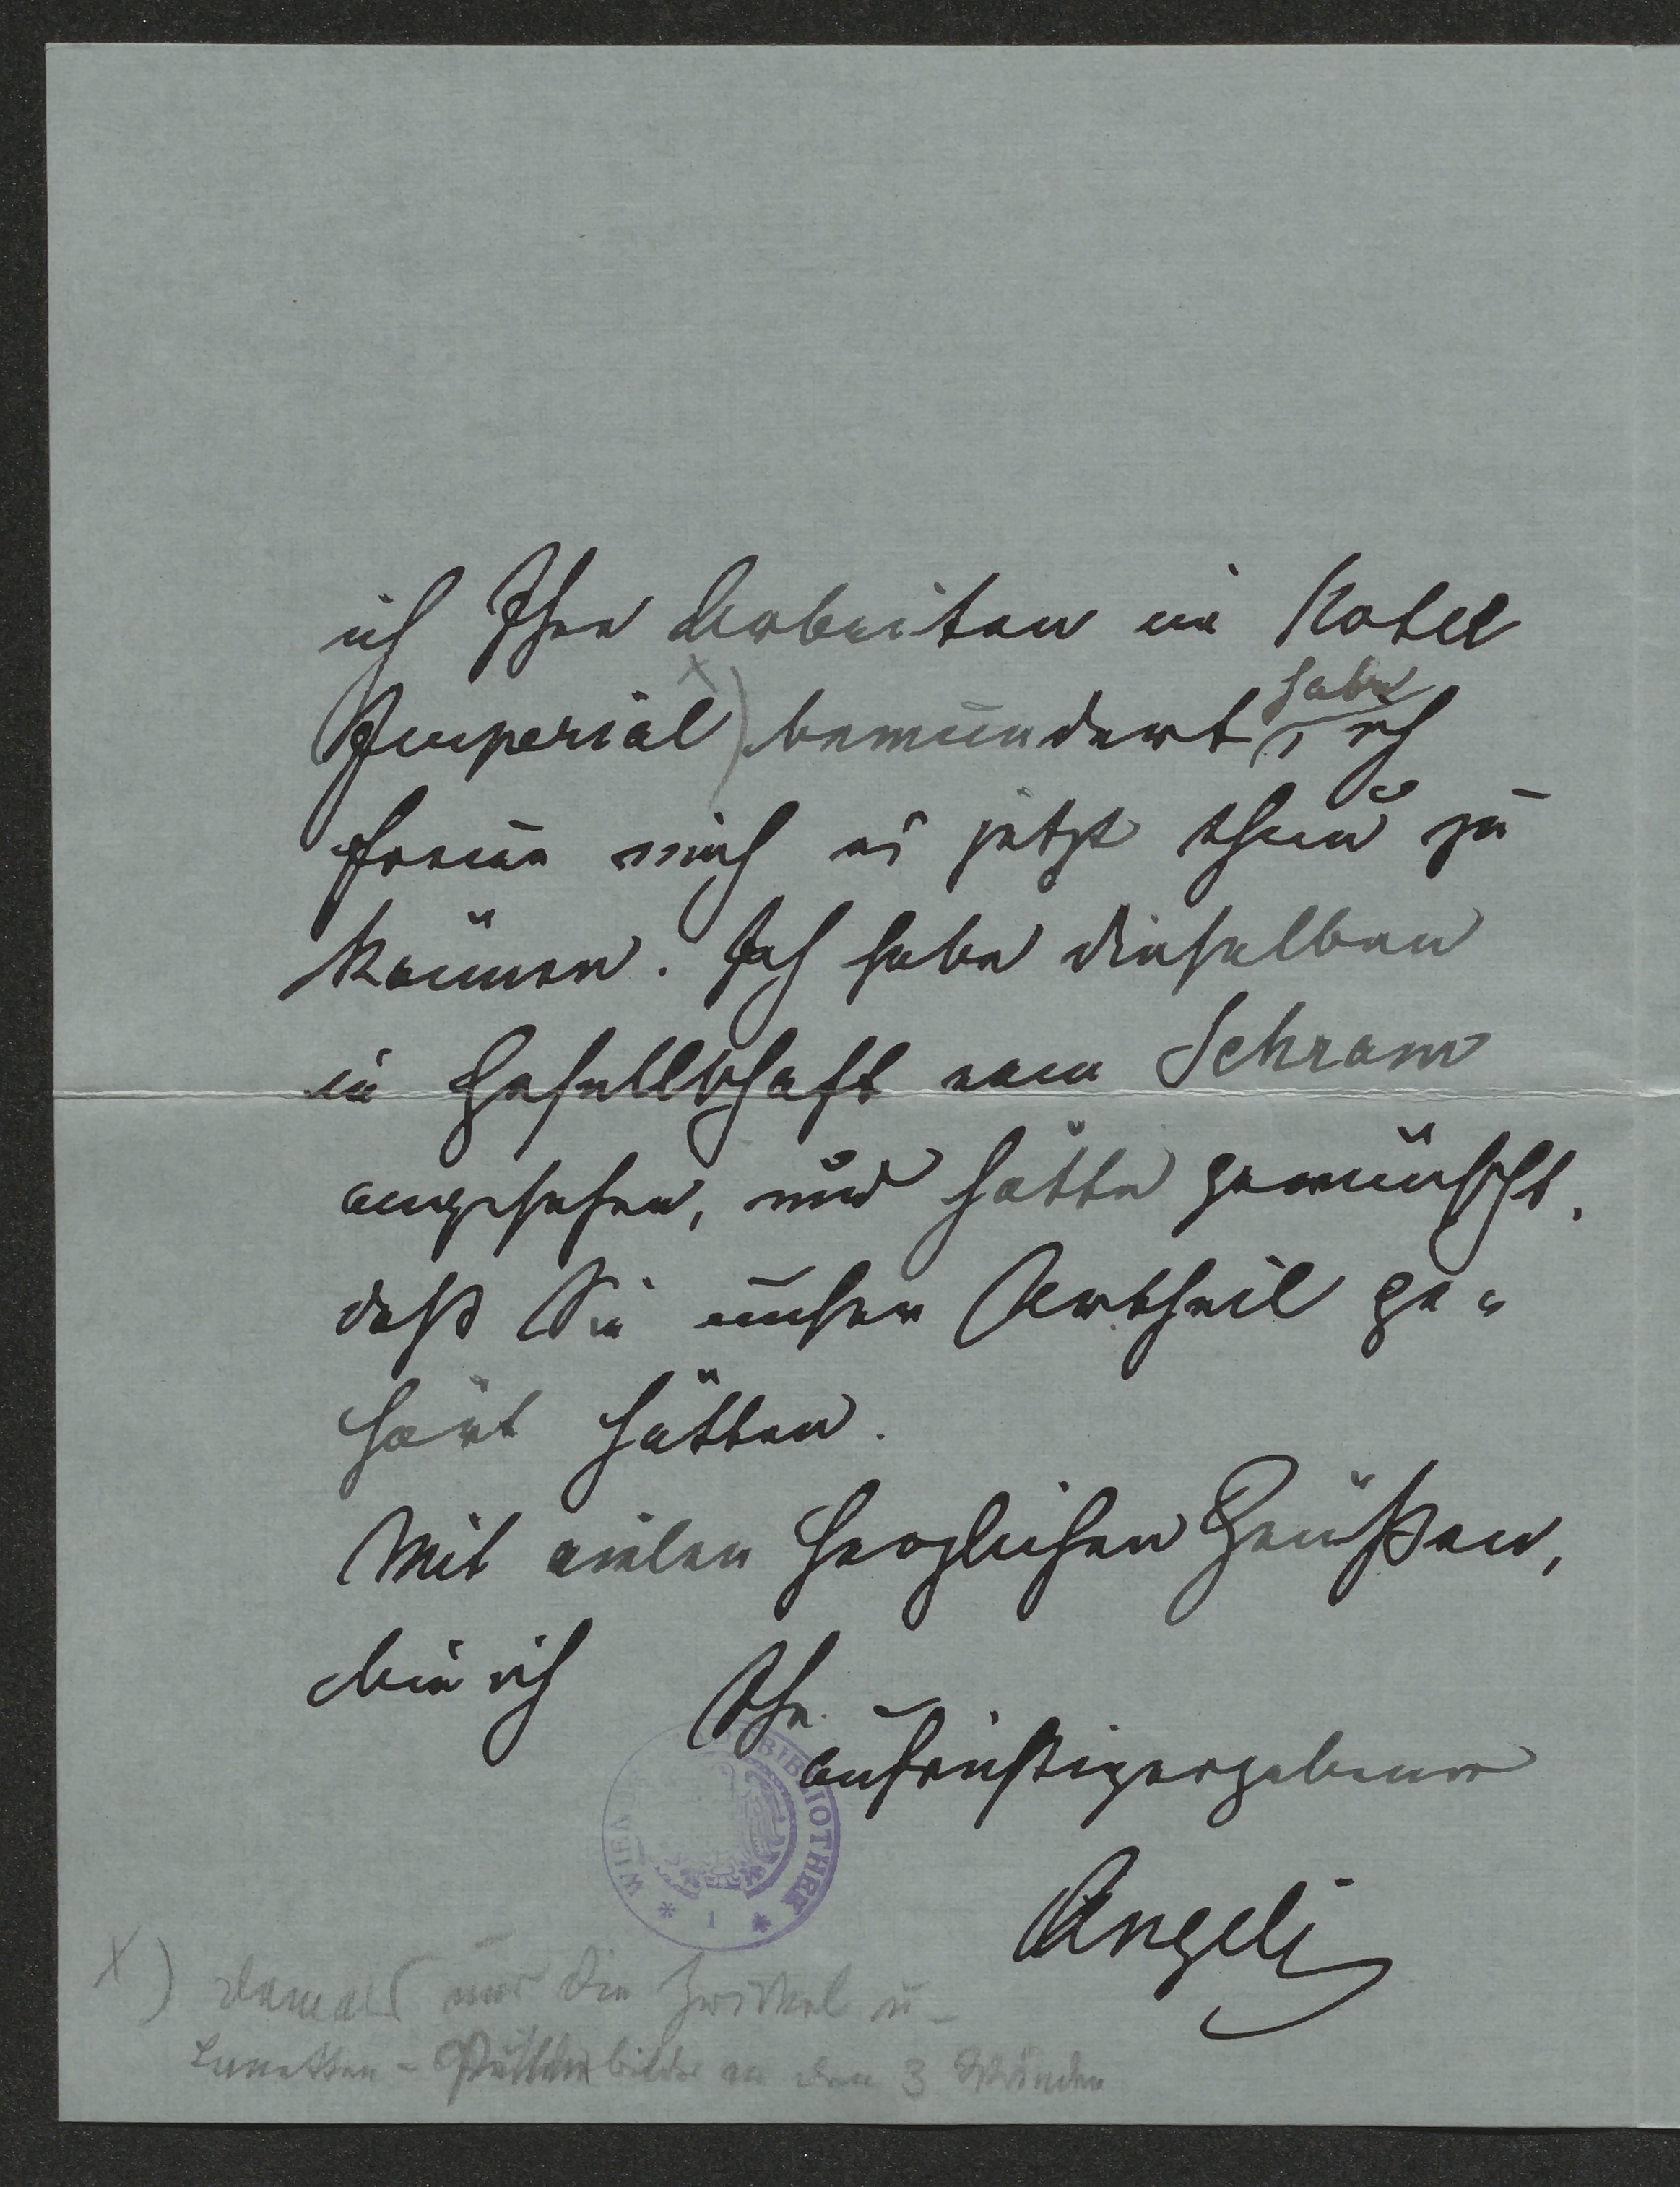 ich Ihre Arbeiten im Hotel
Imperial x) bewundert habe, ich
freue mich es jetzt thun zu
können. Ich habe dieselben
in Gesellschaft von Schram
angesehen, und hätte gewünscht,
daß Sie unser Urtheil ge=
hört hätten.
Mit vielen herzlichen Grüßen,
bin ich Ihr
aufrichtigergebener
Angeli
WIENER BIBLIOTHEK
* 1 *
x) damals nur die Zwickel u
Lunetten - Puttenbilder an den 3 Wänden